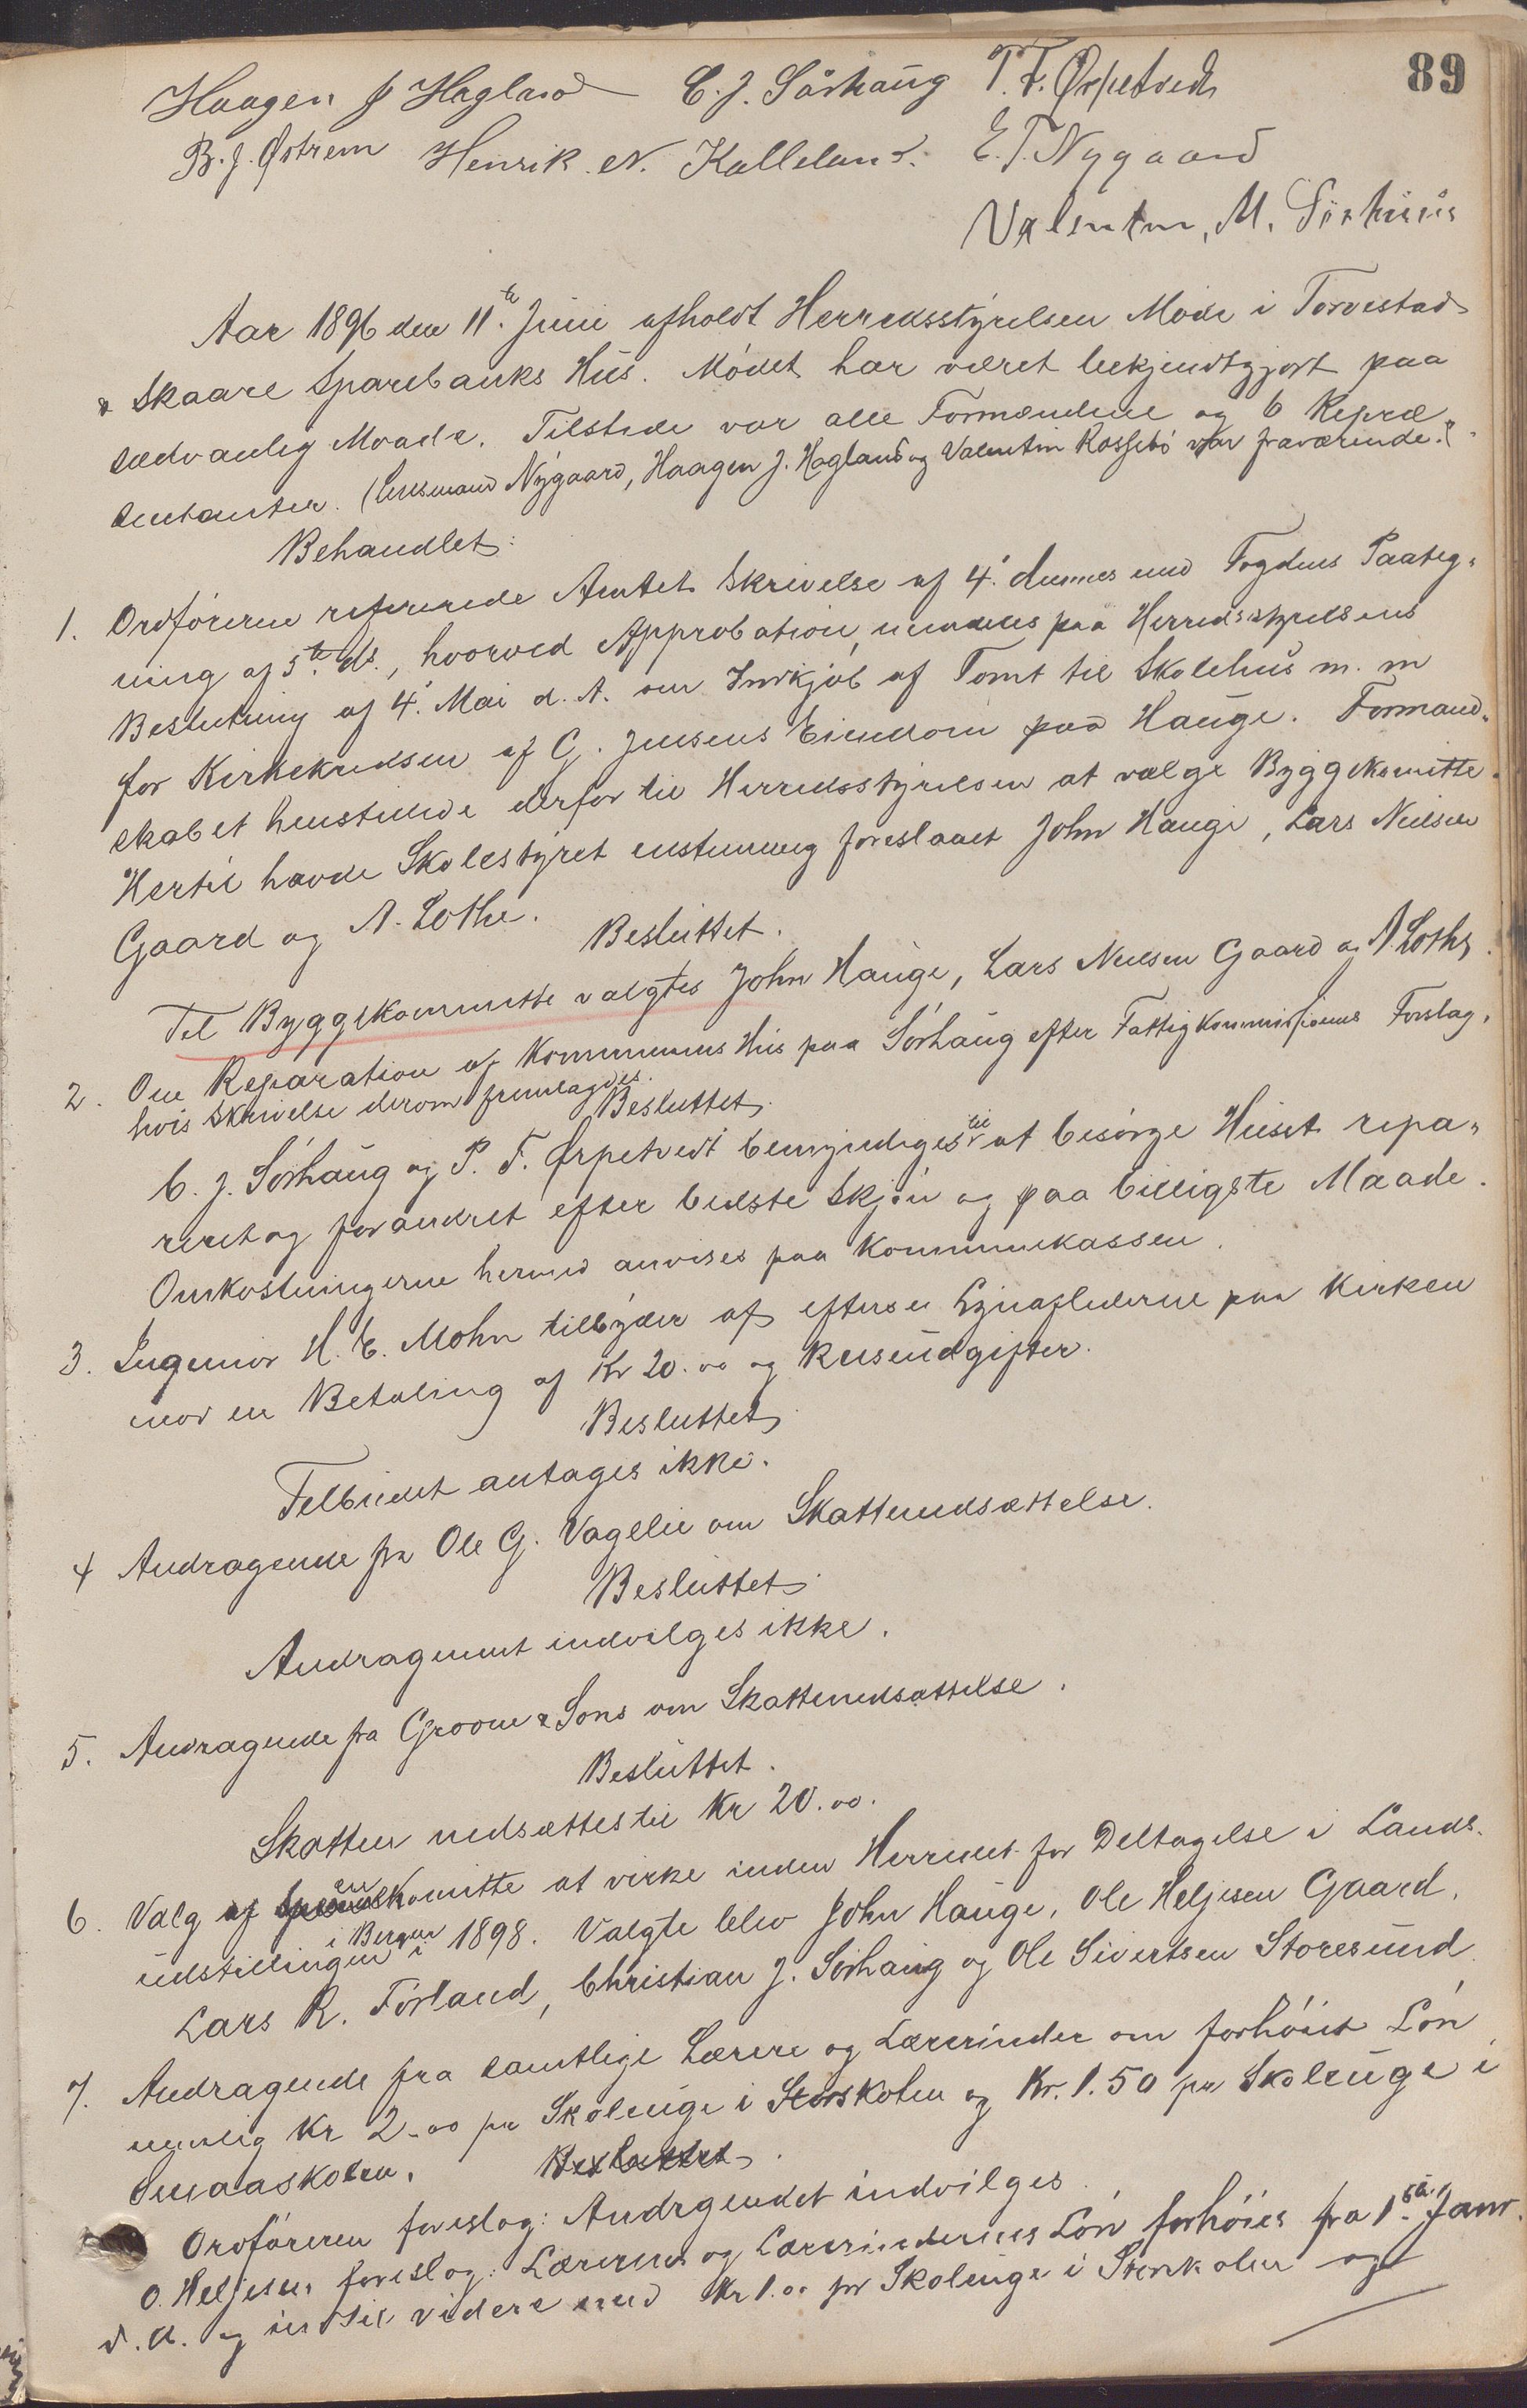 89
Haagen J Hagland C. J. Sørhaug T. F. Ørpetvedt
B. J. Østrem Henrik. N. Kalleland. E. T. Nygaard
Valentin, M. Sørhuus
Aar 1896 den 11te Juni afholdt Herredsstyrelsen Møde i Torvestad
& Skaare Sparebanks Hus. Mødet har været bekjendtgjort paa
sædvanlig Maade. Tilstede var alle Formændene og 6 Repræ
sentanter. (Lensmand Nygaard, Haagen J. Hagland og Valentin Rossebø var fraværende.)
Behandlet:
1. Ordføreren refererede Amtets Skrivelse af 4. dennes med Fogdens Paateg-
ning af 5te ds., hvorved Approbation meddeles paa Herredsstyrelsens
Beslutning af 4. Mai d. A. om Indkjøb af Tomt til Skolehus m. m
for Kirkekredsen af G. Jensens Eiendom paa Hauge. Formand-
skabet henstillede derfor til Herredsstyrelsen at vælge Byggekomitte.
Hertil havde Skolestyret enstemmig foreslaaet John Hauge, Lars Nielsen
Gaard og A. Lothe.
Besluttet.
Til Byggekommitte valgtes John Hauge, Lars Nielsen Gaard og A. Lothe.
2. Om Reparation af Kommunens Hus paa Sørhaug efter Fattigkommissionens Forslag,
hvis Skrivelse derom fremlagdes.
Besluttet.
C. J. Sørhaug og P. F. Ørpetvedt bemyndiges til at besørge Huset repa-
reret og forandret efter bedste Skjøn og paa billigste Maade.
Omkostningerne hermed anvises paa Kommunekassen.
3. Ingeniør H. E. Mohn tilbyder at efterse Lynaflederne paa Kirken
mod en Betaling af Kr 20.00 og Reiseudgifter.
Besluttet
Tilbudet antages ikke.
4 Andragende fra Ole G. Vagelie om Skattenedsættelse.
Besluttet
Andragendet indvilges ikke.
5. Andragende fra Groom & Sons om Skattenedsættelse.
Besluttet.
Skatten nedsættes til Kr 20.00.
6. Valg af en Komitte at virke inden Herredet for Deltagelse i Lands-
udstillingen i Bergen i 1898. Valgte blev John Hauge, Ole Heljesen Gaard,
Lars R. Førland, Christian J. Sørhaug og Ole Sivertsen Storesund.
7. Andragende fra samtlige Lærere og Lærerinder om forhøiet Løn
nemlig Kr 2.00 pr Skoleuge i Storskolen og Kr. 1.50 pr Skoleuge i
Smaaskolen. Besluttet.
Ordføreren foreslog: Andrgendet indvilges.
O. Heljesen foreslog: Lærernes og Lærerindernes Løn forhøies fra 1ste Janr.
d. A. og indtil videre med Kr 1.00 pr Skoleuge i Storskolen og